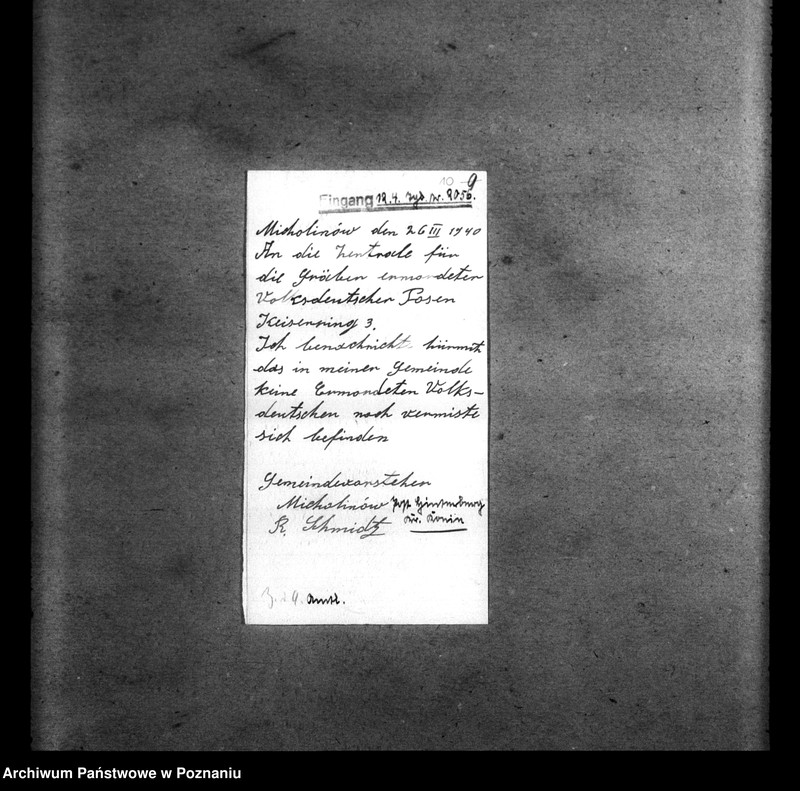 10 9
Eingang 12.4. Tgb. Nr. 2050.
Micholinów den 26 III 1940
An die Zentrale für
die Gräber ermordeter
Volksdeutscher Posen
Keiserring 3.
Ich benachricht hiermit
das in meiner Gemeinde
keine Ermordeten Volks-
deutschen noch vermiste
sich befinden
Gemeindevorsteher
Micholinów Post
R. Schmidtz Kr. Konin
Z. d. A.
Archiwum Państwowe w Poznaniu